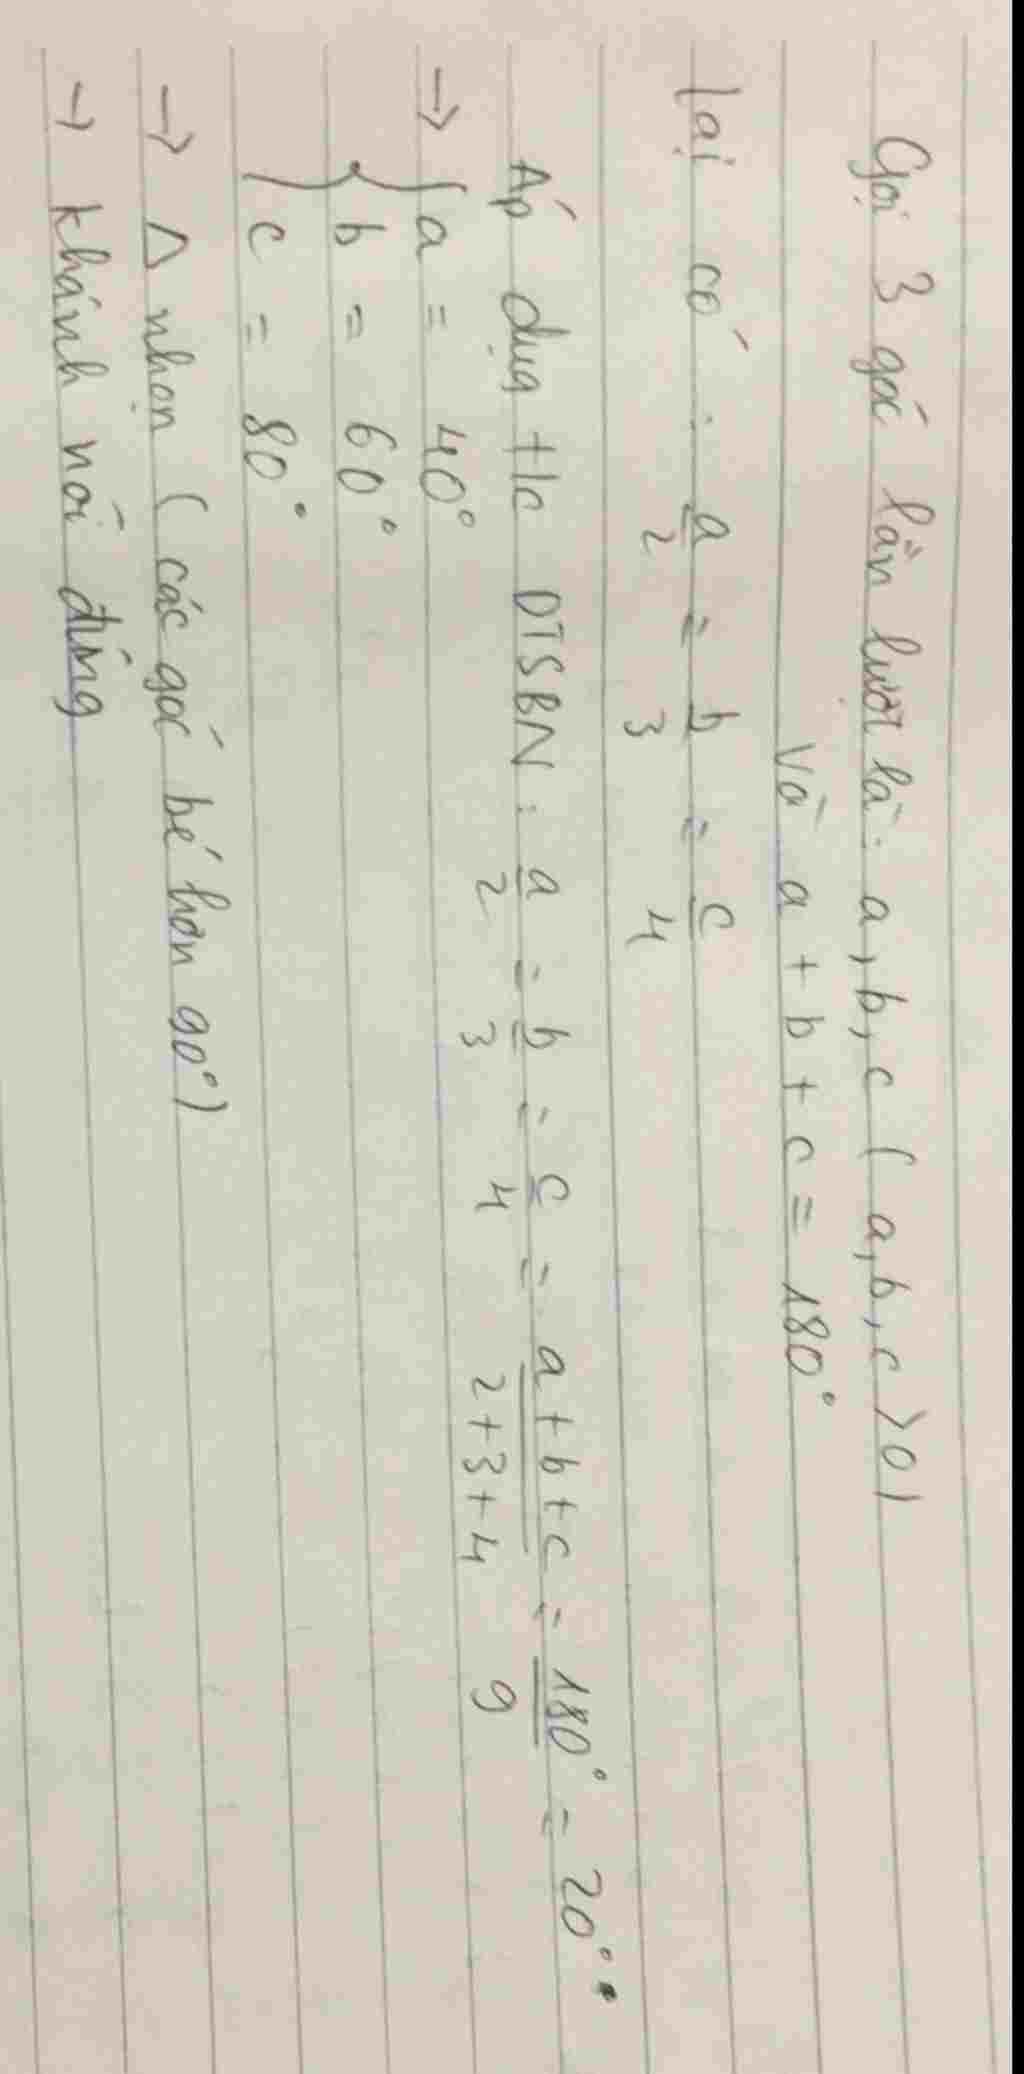 Gọi 3 góc lần lượt là: a, b, c ( a, b, c > 0)
Và a + b + c = 180°
Lại có : a/2 = b/3 = c/4
Áp dụg t/c DTSBN : a/2 = b/3 = c/4 = a + b + c / 2 + 3 + 4 = 180°/9 = 20°.
→ { a = 40°
b = 60°
c = 80°
→ Δ nhọn ( các góc bé hơn 90°)
→ Khánh nói đúng